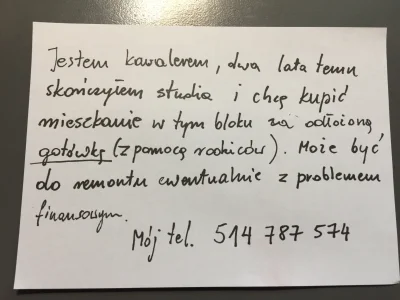 Jestem kawalerem, dwa lata temu
skończyłem studia i chcę kupić
mieszkanie w tym bloku za odłożoną
gotówkę (z pomocą rodziców). Może być
do remontu ewentualnie z problemem
finansowym.
Mój tel. 514 787 574